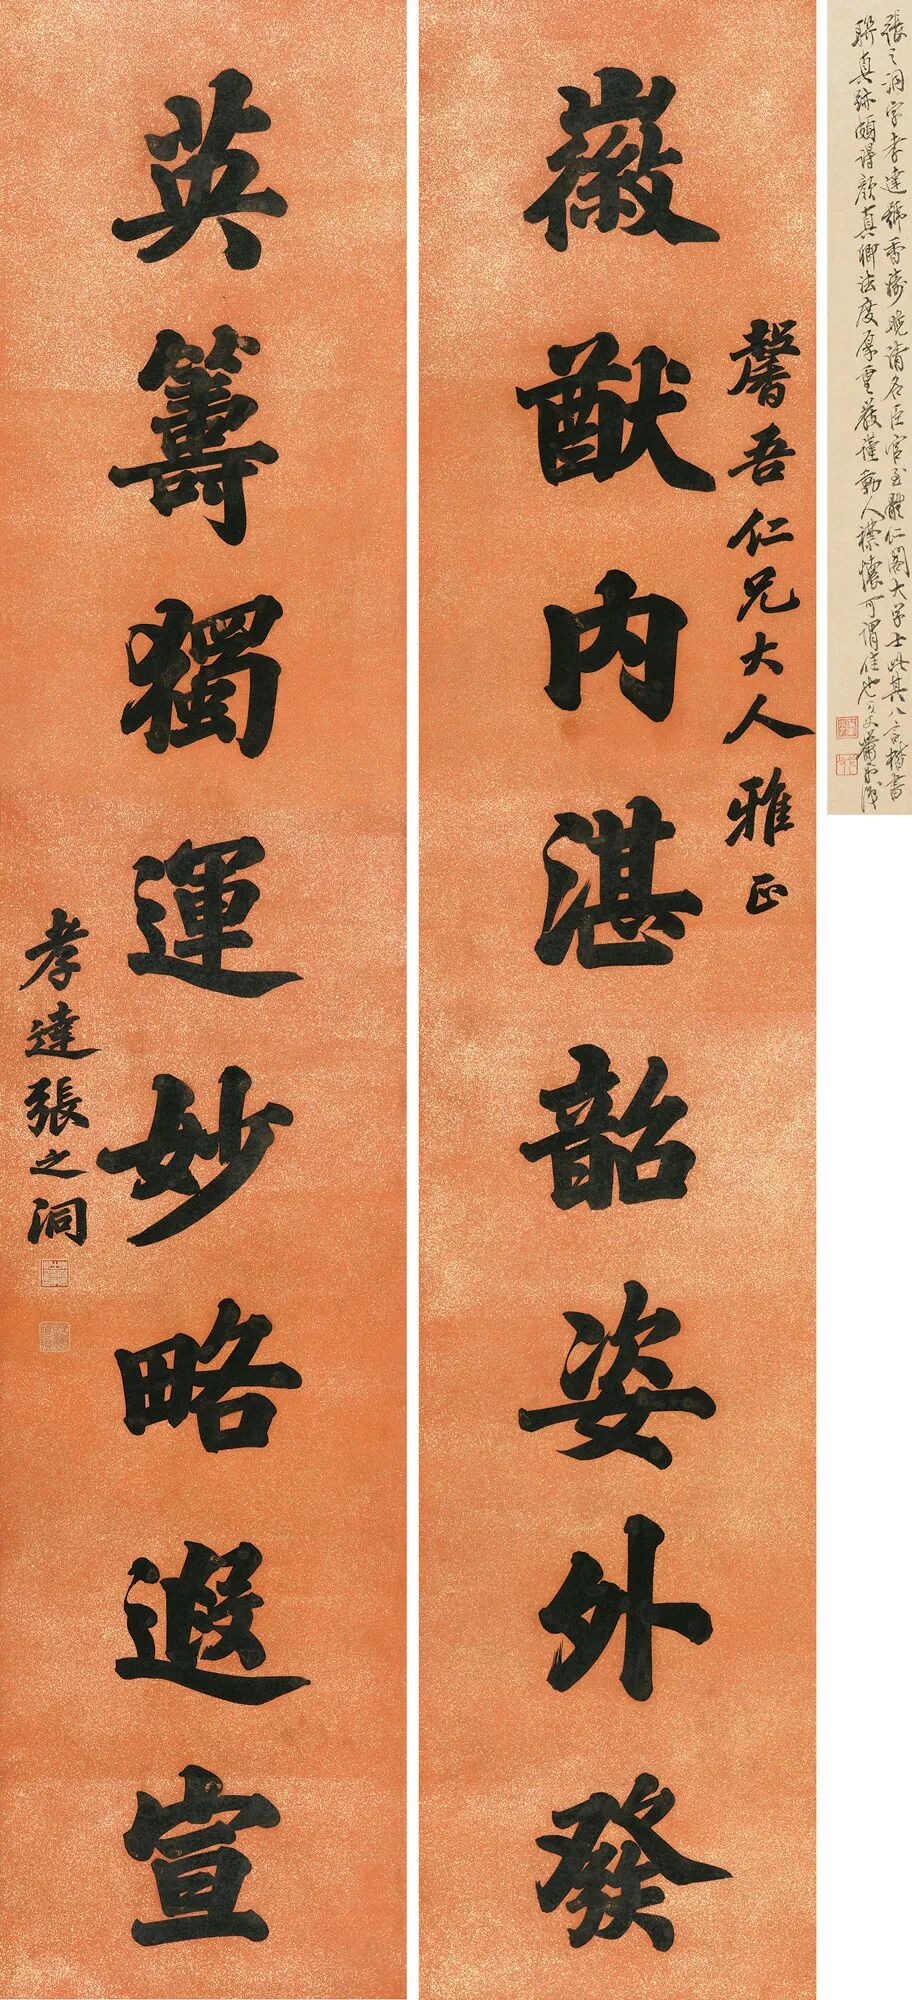 張之洞字孝達號香濤晚清名臣官至體仁閣大學士此其八言楷書
聯真跡頗得顏真卿法度厚重嚴謹動人襟懷可謂佳也
馨吾仁兄大人雅正
徽猷內湛韶姿外發
英籌獨運妙略遐宣
孝達張之洞